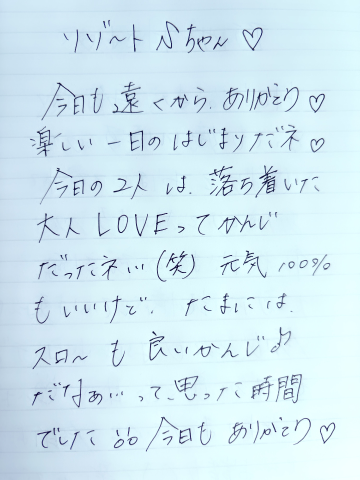 リゾートSちゃん♡
今日も遠くから、ありがとう♡
楽しい一日のはじまりだネ♡
今日の2人は、落ち着いた
大人LOVEってかんじ
だったネ…(笑) 元気100%
もいいけど、たまには、
スロ〜も良いかんじ♪
だなぁ…って、思った時間
でした 今日もありがとう♡